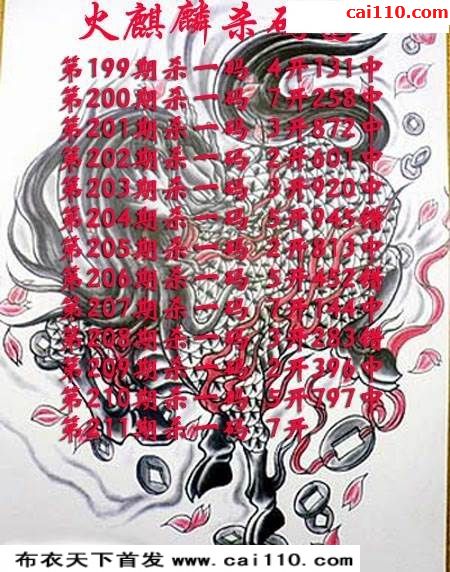 cai110.com
火麒麟杀码
第199期杀一码 4开131中
第200期杀一码 7开258中
第201期杀一码 3开872中
第202期杀一码 2开601中
第203期杀一码 3开920中
第204期杀一码 5开945错
第205期杀一码 2开813中
第206期杀一码 5开452错
第207期杀一码 开144中
第208期杀一码 3开283错
第209期杀一码 2开396中
第210期杀一码 5开797中
第211期杀一码 7开
布衣天下首发 www.cai110.com